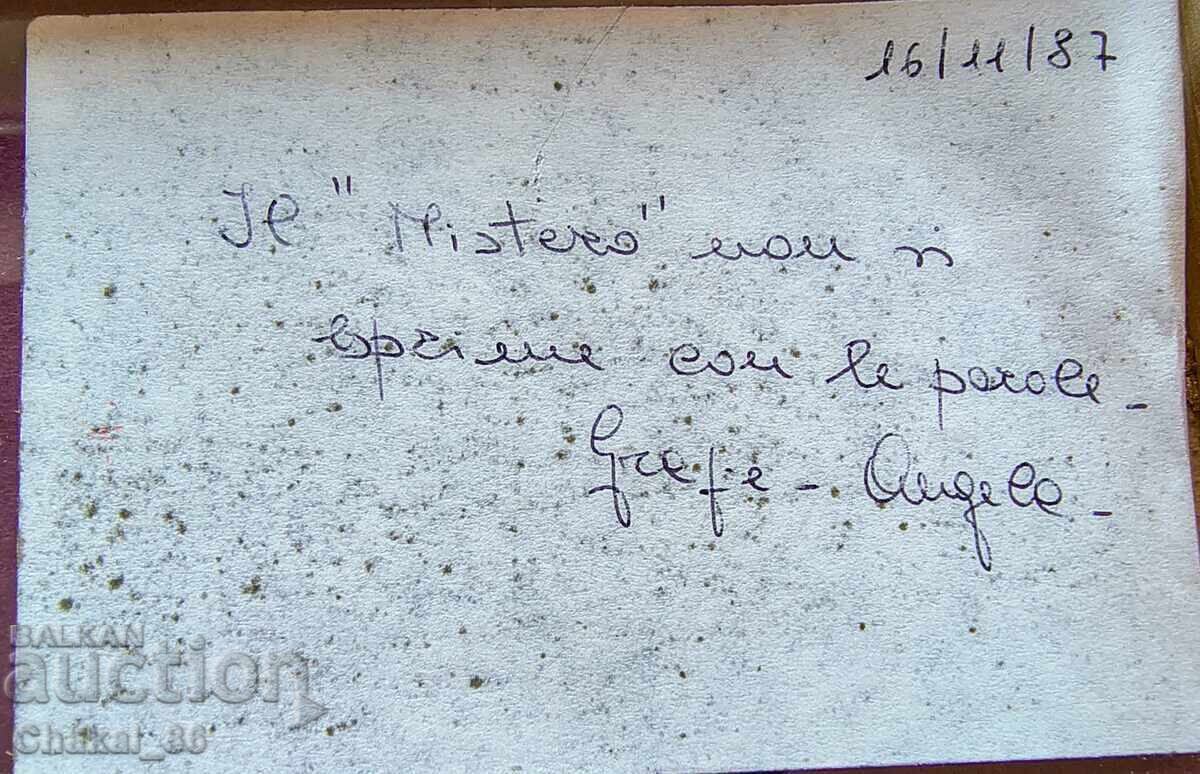 16/11/87
Il "Mistero" non si
esprime con le parole -
Angela -
BALKAN
auction
Chakal_86